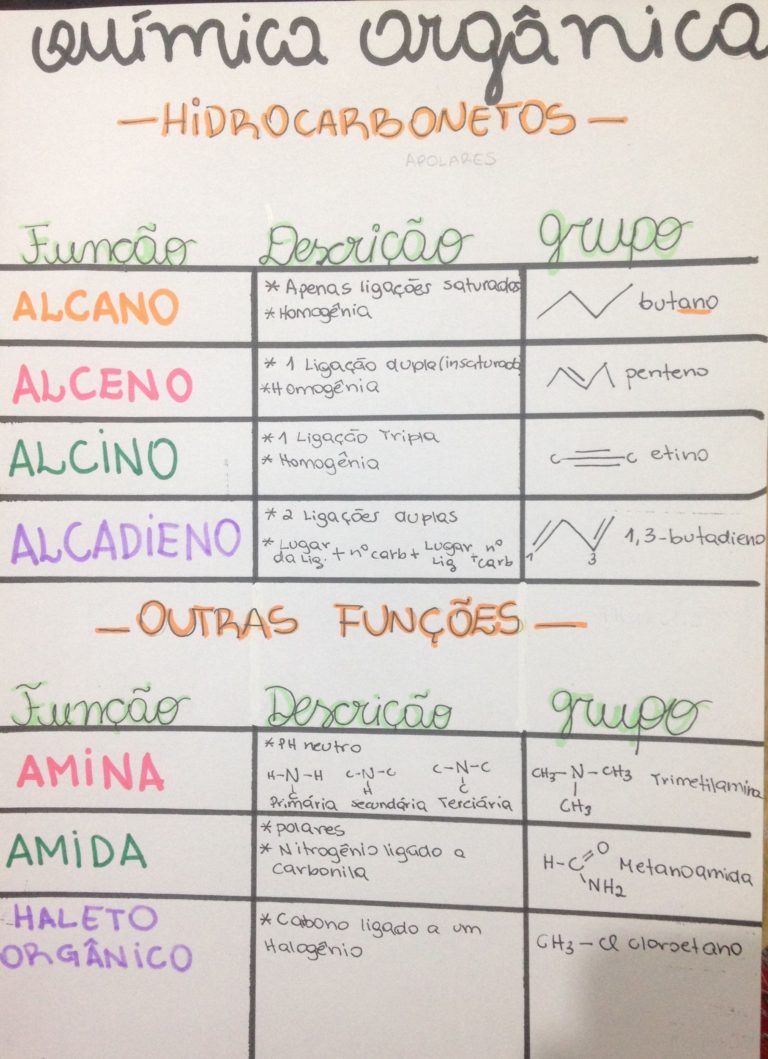 Química orgânica
— HIDROCARBONETOS —
APOLARES
Função Descrição grupo
ALCANO
* Apenas ligações saturadas
* Homogênia
butano
ALCENO
* 1 Ligação dupla (insaturada)
* Homogênia
penteno
ALCINO
* 1 Ligação Tripla
* Homogênia
C≡C etino
ALCADIENO
* 2 Ligações duplas
* Lugar da Lig. + nº carb + Lugar Lig + nº carb
1 3 1,3-butadieno
— OUTRAS FUNÇÕES —
Função Descrição grupo
AMINA
* PH neutro
H-N-H C-N-C C-N-C
C H C
Primária secundária Terciária
CH3-N-CH3 Trimetilamina
CH3
AMIDA
* polares
* Nitrogênio ligado a
carbonila
O
H-C Metanoamida
NH2
HALETO
ORGÂNICO
* Cabono ligado a um
Halogênio
CH3-Cl cloroetano